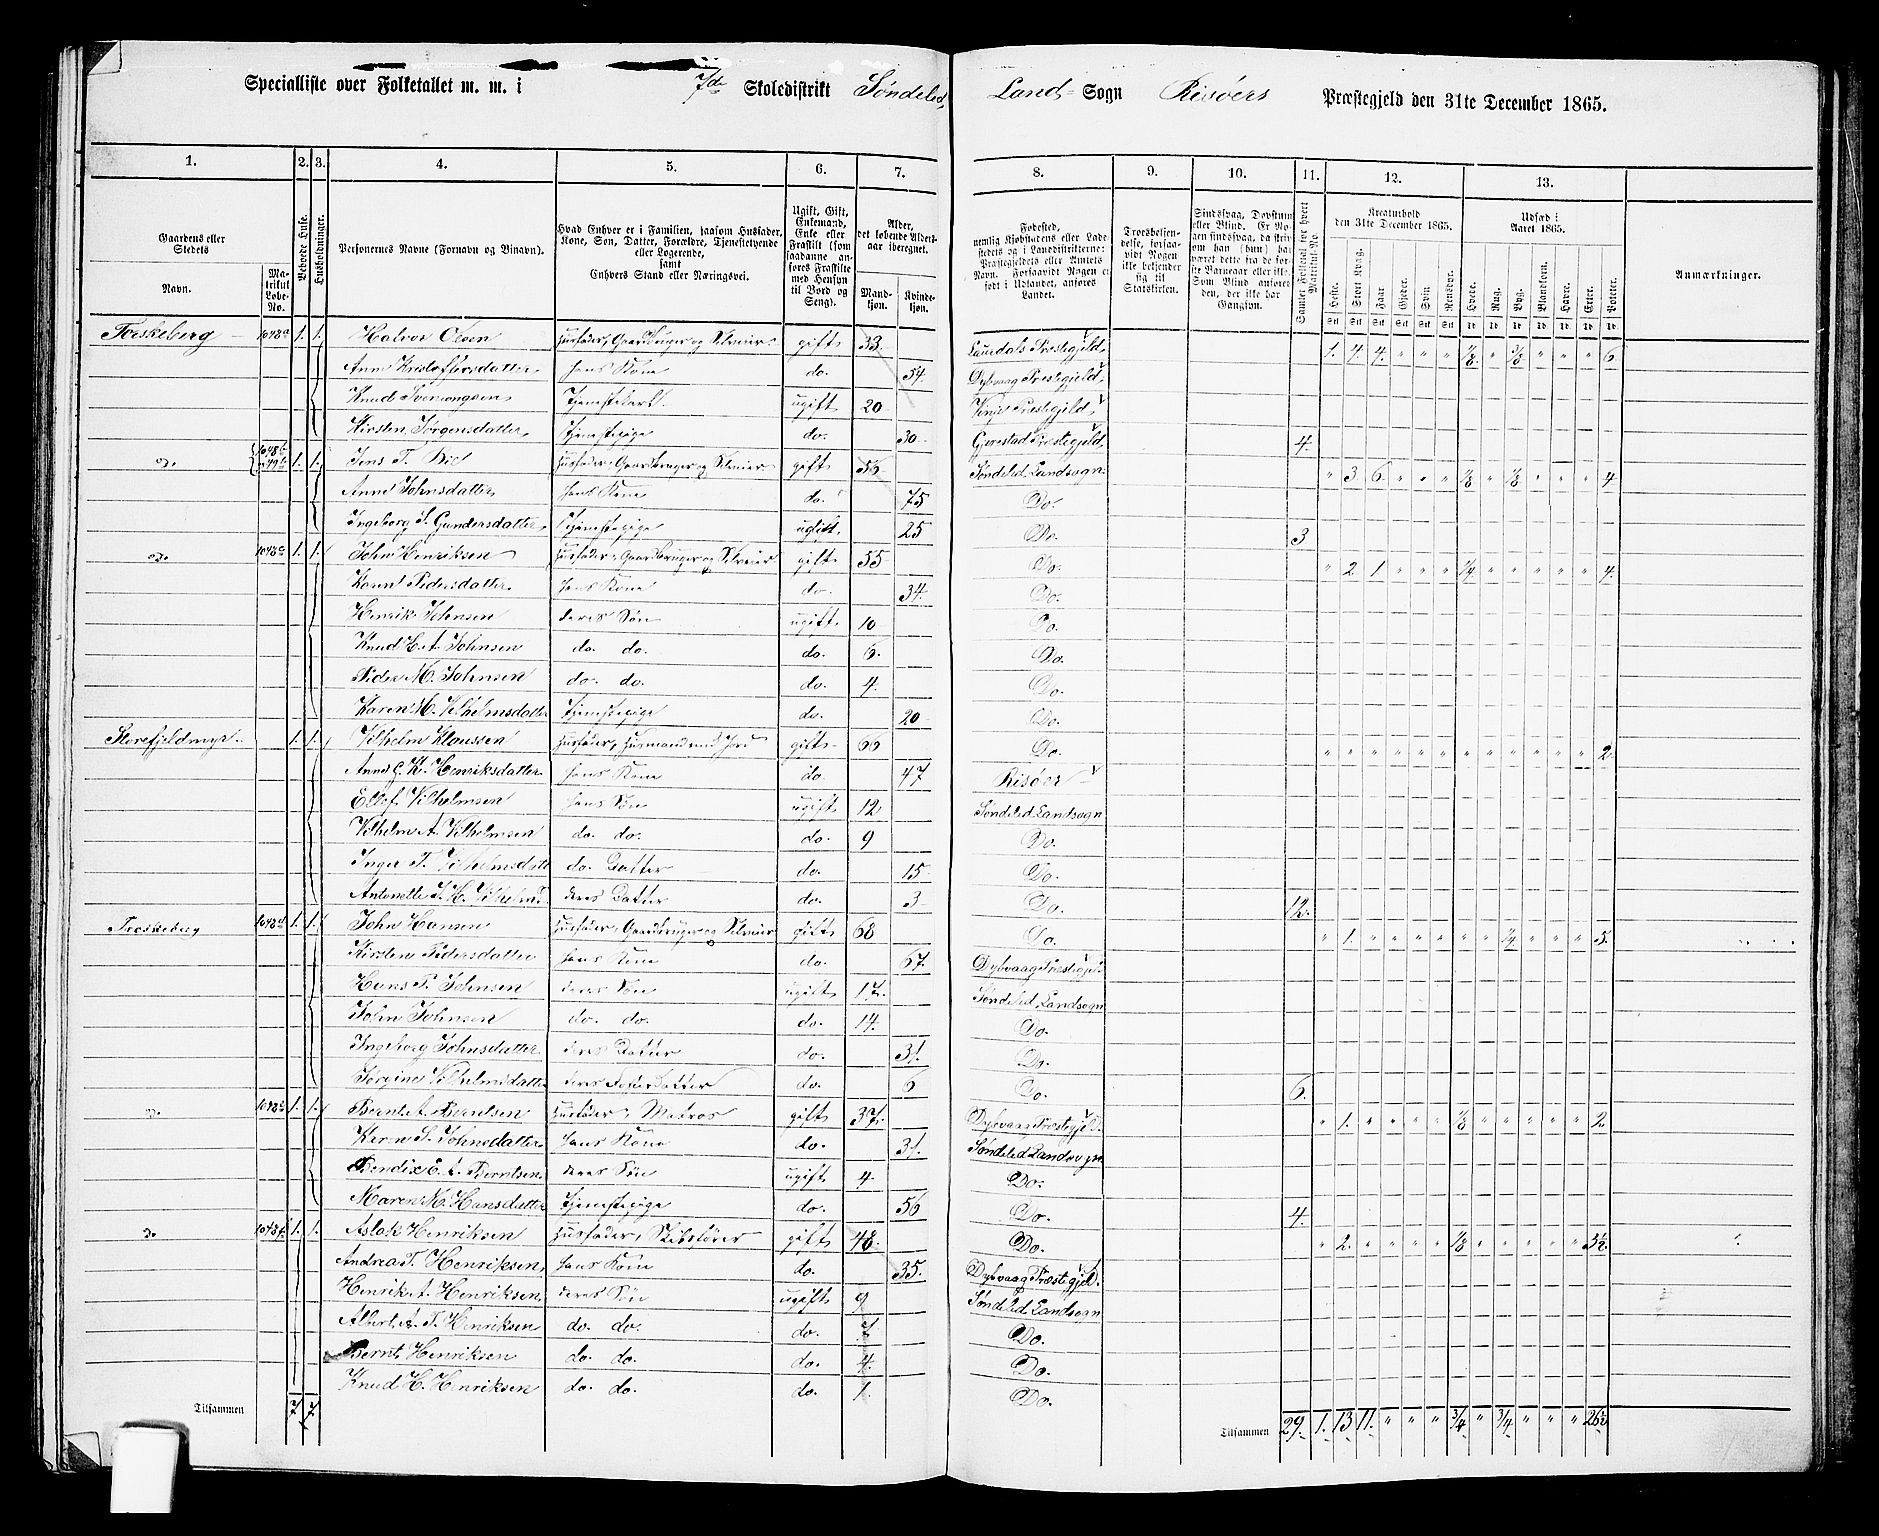 Specialliste over Folketallet m. m. i 7de Skoledistrikt Søndeled Land- Sogn Risøers Præstegjeld den 31te December 1865.
1. 2. 3. 4. 5. 6. 7. 8. 9. 10. 11. 12. 13.
Gaardens eller Stedets
Navn. Matrikul Løbe-No.
Beboede Huse.
Husholdninger.
Personernes Navne (Fornavn og Tilnavn).
Hvad Enhver er i Familien, saasom Husfader, Kone, Søn, Datter, Forældre, Tjenestetyende eller Logerende, samt Enhvers Stand eller Næringsvei.
Ugift, Gift, Enkemand, Enke eller Fraskilt (som saadanne anføres Fraskilte med Hensyn til Bord og Seng).
Alder, det løbende Aldersaar iberegnet.
Mandkjøn. Kvindekjøn.
Fødested, nemlig Kjøbstadens eller Ladestedets og i Landdistrikterne: Præstegjeldets eller Amtets Navn. Forsaavidt Nogen er født i Udlandet, anføres Landet.
Troesbekjendelse, forsaavidt Nogen ikke bekjender sig til Statskirken.
Sindssvag, Døvstum eller Blind. Er Nogen sindssvag, da skrives han (hun) har været dette fra de første Barneaar eller ikke. Som Blind anføres den, der ikke har Gangsyn.
Samlet Folketal for hvert Matrikul-No.
Kreaturhold den 31te December 1865.
Heste. Stort Kvæg. Faar. Gjeder. Svin. Rensdyr.
Udsæd i Aaret 1865.
Hvede. Rug. Byg. Blandkorn. Havre. Erter. Poteter.
Anmærkninger.
Torskeberg 1048a 1. 1. Halvor Olsen Husfader, Gaardbruger og Selveier gift 33. Laurdals Præstegjeld 1. 4. 4. " " " 1/8 " 3/8 " " " 6
Ann Kristoffersdatter hans Kone do. 54. Dybvaag Præstegjeld
Knud Tjenestekarl. ugift 20 Vinje Præstegjeld
Kirsten Jørgensdatter Tjenestepige do. 30 Gjerestad Præstegjeld 4.
do 1048b 1. 1. Jens T. Husfader, Gaardbruger og Selveier gift 56 Søndeled Landsogn " 3 6 " " " 1/8 " 1/8 " " " 4
Anne Johnsdatter hans Kone do. 75 Do.
Ingeborg S. Gundersdatter Tjenestepige ugift. 25 Do. 3
do 1048c 1. 1. John Henriksen Husfader, Gaardbruger og Selveier gift 55 Do. " 2. 1 " " " 1/4 " " " " " 4.
Karen Pedersdatter hans Kone do. 34. Do.
Henrik Johnsen deres Søn ugift. 10 Do.
Knud H. A. Johnsen do. do. do. 6. Do.
Peder M. Johnsen do. do. do. 4. Do.
Karen M. Vilhelmsdatter Tjenestepige do. 20 Do.
Storefjeldmyr 1. 1. Vilhelm Klaussen Husfader, Husmand med Jord gift 66 Do. " " " " " " " " " " " " 2
Anne G. K. Henriksdatter hans Kone do 47 Risøer
Ellef Vilhelmsen hans Søn ugift 12 Søndeled Landsogn
Vilhelm A. Vilhelmsen do. do. do. 9 Do.
Inger T. Vilhelmsdatt do. Datter do. 15 Do.
Antonette K. H. Vilhelmsd deres Datter do. 3 Do. 12.
Torskeberg 1048d 1. 1. John Hansen Husfader, Gaardbruger og Selveier gift 68 Do. " 1. " " " " " " 1/4 " " " 5.
Kirsten Pedersdatter hans Kone do. 67. Dybvaag Præstegjel.
Hans P. Johnsen deres Søn ugift 17. Søndeled Landsogn
John Johnsen do. do. do. 14. Do.
Ingeborg Johnsdatter deres Datter do. 31. Do.
Jørgine Vilhelmsdatter deres Datter do. 6 Do. 6.
Do 1048e 1. 1. Bernt A. Berntsen Husfader, Matros gift 37. Dybvaag Præstegjel. " 1. " " " " 1/8 " " " " " 2
Karen S. Johnsdatter hans Kone do. 31. Søndeled Landsogn
Bendix E. A. Berntsen. deres Søn ugift 4. Do.
Maren M. Hansdatter Tjenestepige do. 56 Do. 4.
Do 1048f 1. 1. Aslak Henriksen Husfader, Skibsfører gift 48. Do. " 2. " " " " 1/8 " " " " " 3½.
Andrea T. Henriksen hans Kone do. 35. Dybvaag Præstegjel.
Henrik A. Henriksen. deres Søn ugift 9 Søndeled Landsogn
Albert A. T. Henriksen do. do. do. 7 Do.
Bernt Henriksen do. do. do. 4. Do.
Knud H. Henriksen do. do. do. 1. Do.
Tilsammen 7 7 Tilsammen 29. 1. 13 11. " " " 3/4 " 3/4 " " " 26½